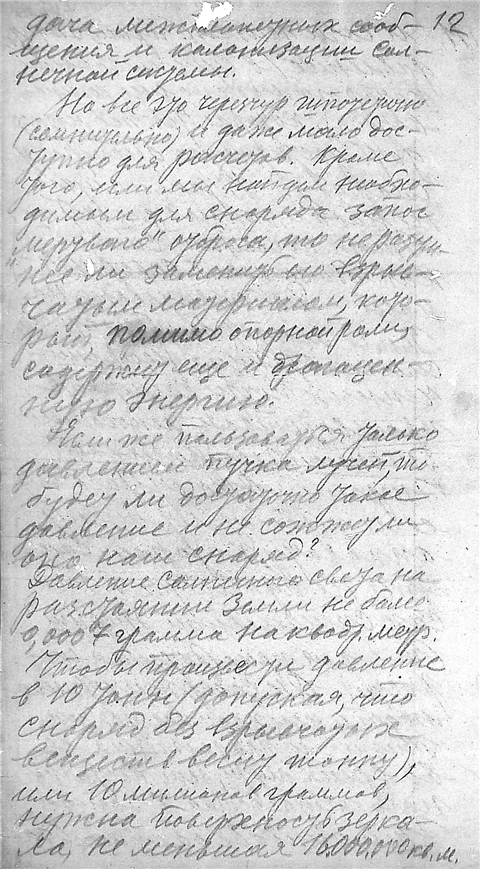 12
дача межпланетных сооб-
щения и колонизации сол-
нечной системы.
Но все это чересчур гипотетично
(сомнительно) и даже мало дос-
тупно для расчетов. Кроме
того, если мы найдем необхо-
димым для снаряда запас
"мертвого" отброса, то не разум-
нее ли заменить его взрыв-
чатым материалом, кото-
рый, помимо опорной роли,
содержит еще и драгоцен-
ную энергию.
Если же пользоваться только
давлением пучка лучей, то
будет ли достаточно такое
давление и не сожжет ли
оно наш снаряд?
Давление солнечного света на
расстоянии Земли не более
0,0007 грамма на квадр. метр.
Чтобы произвести давление
в 10 тонн (допуская, что
снаряд без взрывчатых
веществ весит тонну),
или 10 милионов граммов,
нужна поверхность зерка-
ла, не меньшая 16.000.000 кв. м.